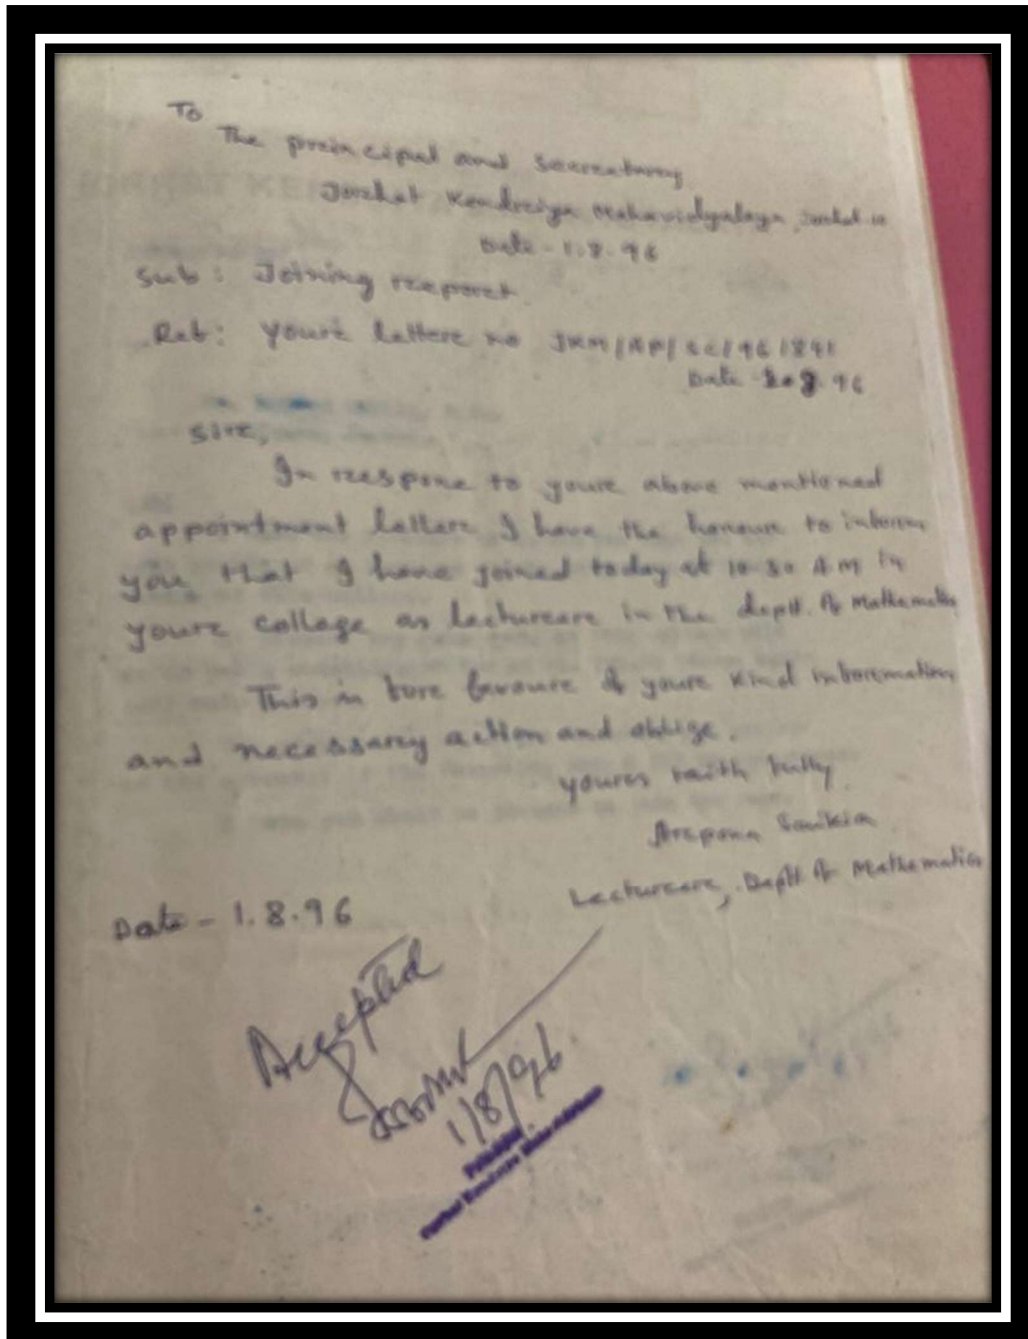 To
The preincipal and Secreatarey
Jorhat Kendreiya Mahavidyalaya, Jorhat 10
Date - 1.8.96
Sub : Joining reeporet
Ref : Youre lettere no JKM/AP/ /96/841
Date 96
Sire,
In respone to youre above mentioned
appointment lettere I have the honoure to inform
you that I have joined today at 10-30 AM in
youre college as lecturere in the deptt. of Mathematics
This is fore favoure of youre kind inforemation
and necessarey action and oblige.
youres faith fully
Arepona Saikia
Lecturere, Deptt of Mathematics
Date - 1.8.96
Accepted
1/8/96
Principal
Jorhat Kendreiya Mahavidyalaya